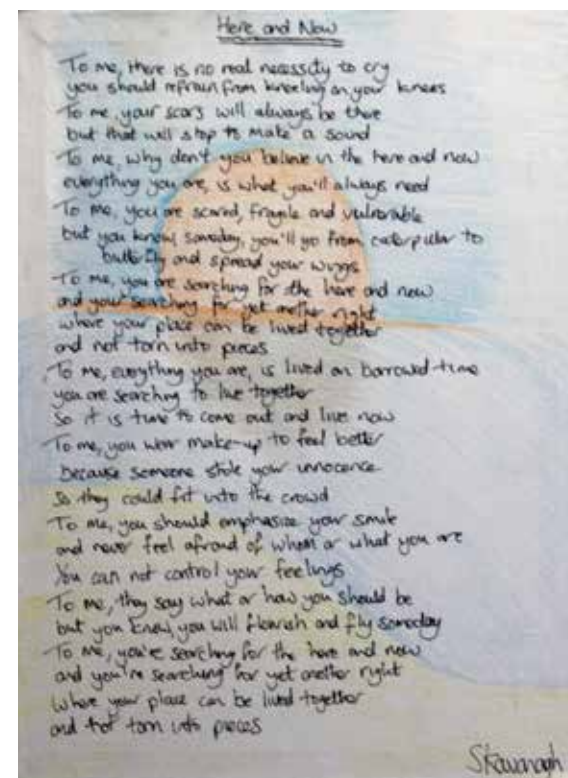 Here and Now
To me, there is no real necessity to cry
you should refrain from kneeling on your knees
To me, your scars will always be there
but that will stop to make a sound
To me, why don't you believe in the here and now
everything you are, is what you'll always need
To me, you are scared, fragile and vulnerable
but you know, someday, you'll go from caterpillar to
butterfly and spread your wings
To me, you are searching for the here and now
and your searching for yet another right
where your place can be lived together
and not torn into pieces
To me, everything you are, is lived on borrowed-time
you are searching to live together
So it is time to come out and live now
To me, you wear make-up to feel better
because someone stole your innocence
So they could fit into the crowd
To me, you should emphasize your smile
and never feel afraid of whom or what you are
You can not control your feelings
To me, they say what or how you should be
but you know, you will flourish and fly someday
To me, you're searching for the here and now
and you're searching for yet another right
where your place can be lived together
and not torn into pieces
SKavanagh